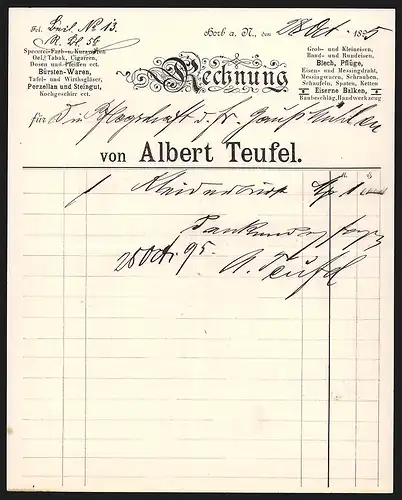 Fol. Beil No 13.
R. Bl. 56
Horb a. N., den 28 Oct. 1895
Specerei-Farb-u. Kurzwaren
Oel, Tabak, Cigarren,
Dosen und Pfeifen ect.
Bürsten-Waren,
Tafel- und Wirthsgläser,
Porzellan und Steingut,
Kochgeschirr ect.
Rechnung
Grob- und Kleineisen,
Band- und Rundeisen,
Blech, Pflüge,
Eisen- und Messingdraht,
Messingwaren, Schrauben,
Schaufeln, Spaten, Ketten
Eiserne Balken,
Baubeschläg, Handwerkzeug
für die Pflegschaft d. Fr.
von Albert Teufel.
1 Kleiderbürste 1
25 Oct. 95.
A. Teufel